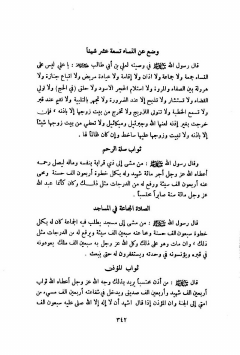 وضع عن النساء تسعة عشر شيئاً
قال رسول الله ﷺ في وصيته لعلي بن أبي طالب ﷺ : يا علي ليس على
النساء جمعة ولا جماعة ولا اذان ولا إقامة ولا عيادة مريض ولا اتباع جنازة ولا
هرولة بين الصفا والمروة ولا استلام الحجر الاسود ولا حلق (في الحج) ولا تولي
القضاء ولا تستشار ولا تذبح إلا عند الضرورة ولا تجهر بالتلبية ولا تقيم عند قبر
ولا تسمع الخطبة ولا تتولى التزويج ولا تخرج من بيت زوجها إلا بإذنه فإن
خرجت بغير إذنه لعنها الله وجبرئيل وميكائيل ولا تعطي من بيت زوجها شيئاً
إلا باذنه ولا تبيت وزوجها عليها ساخط وإن كان ظالماً لها .
ثواب صلة الرحم
وقال رسول الله ﷺ : من مشى إلى ذي قرابة بنفسه وماله ليصل رحمه
أعطاه الله عز وجل أجر مائة شهيد وله بكل خطوة أربعون الف حسنة ويمحى
عنه أربعون الف سيئة ورفع له من الدرجات مثل ذلك وكان كأنما عبد الله
عز وجل مائة سنة صابراً محتسباً .
الصلاة الجماعة في المساجد
قال رسول الله ﷺ : من مشى إلى مسجد يطلب فيه الجماعة كان له بكل
خطوة سبعون الف حسنة ومحا عنه سبعين الف سيئة ويرفع له من الدرجات مثل
ذلك « وان مات وهو على ذلك وكل الله عز وجل به سبعين الف ملك يعودونه
في قبره ويؤنسونه في وحدته ويستغفرون له حتى يبعث .
ثواب المؤذن
قال رسول الله ﷺ : من أذن محتسباً يريد بذلك وجه الله عز وجل أعطاه الله ثواب
أربعين الف شهيد وأربعين الف صديق ويدخل في شفاعته أربعين الف مسيء من
أمتي إلى الجنة وان المؤذن إذا قال اشهد أن لا إله إلا الله صلى عليه سبعون الف
٣٤٢